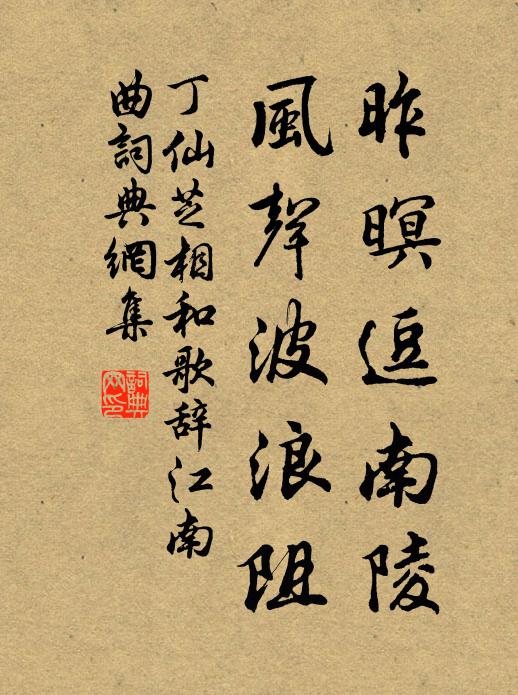 昨暝逗南陵
風聲波浪阻
丁仙芝相和歌辞江南
曲詞典網集
詞典网印